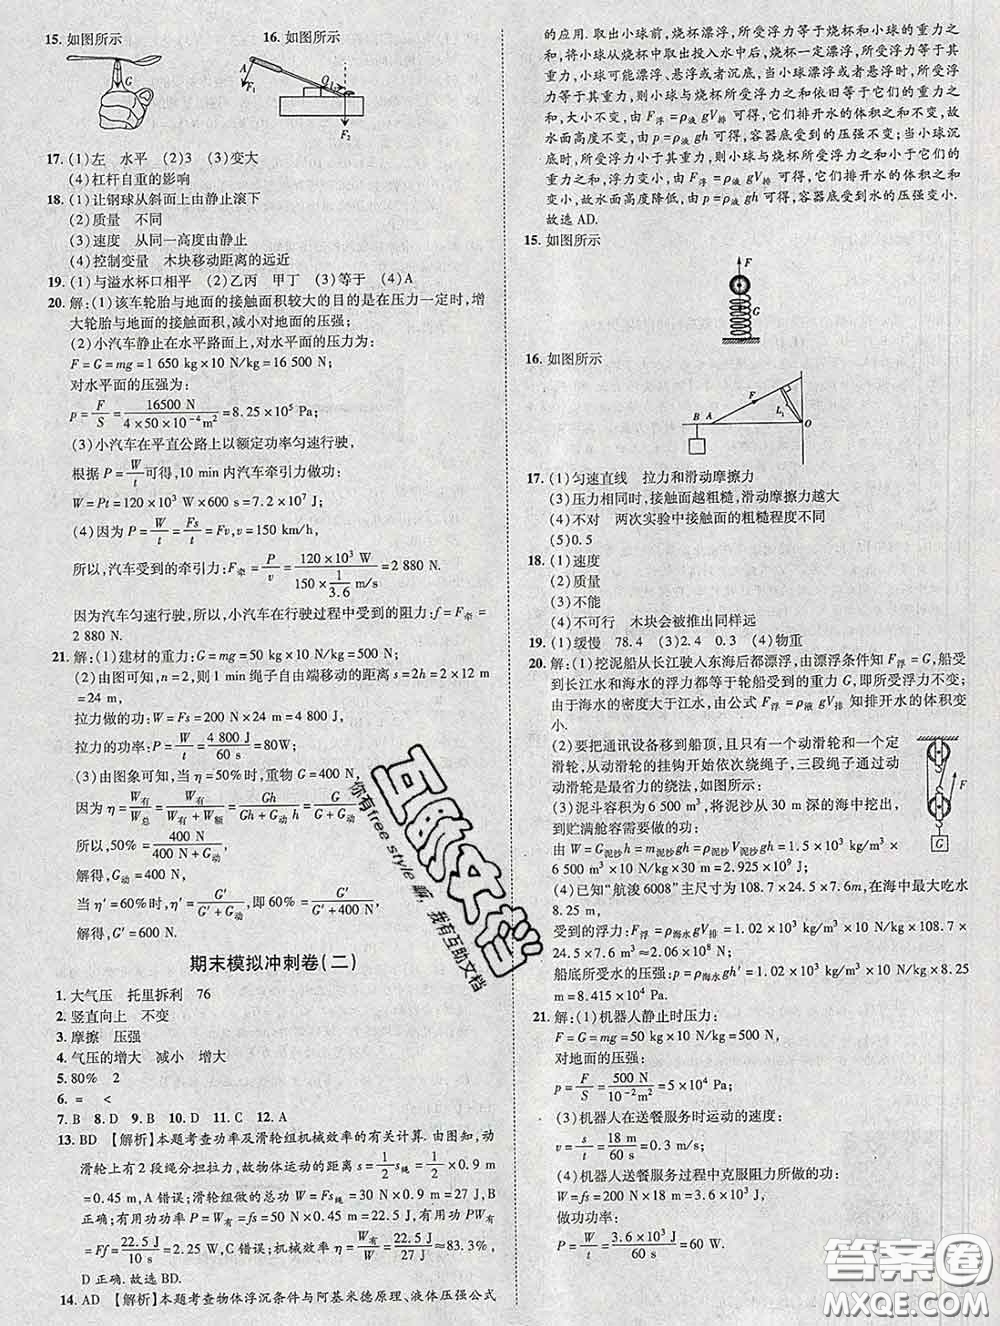 15. 如图所示 16. 如图所示
G
A F₁ O L₂ F₂
17. (1)左 水平 (2)3 (3)变大
(4)杠杆自重的影响
18. (1)让钢球从斜面上由静止滚下
(2)质量 不同
(3)速度 从同一高度由静止
(4)控制变量 木块移动距离的远近
19. (1)与溢水杯口相平 (2)乙丙 甲丁 (3)等于 (4)A
20. 解:(1)该车轮胎与地面的接触面积较大的目的是在压力一定时,增
大轮胎与地面的接触面积,减小对地面的压强;
(2)小汽车静止在水平路面上,对水平面的压力为:
F=G=mg=1 650 kg×10 N/kg=16 500 N
对水平面的压强为:
P=F/S=16500 N/(4×50×10⁻⁴m²)=8.25×10⁵ Pa;
(3)小汽车在平直公路上以额定功率匀速行驶,
根据P=W/t可得,10 min内汽车牵引力做功:
W=Pt=120×10³ W×600 s=7.2×10⁷ J;
(4)因为P=W/t=Fs/t=Fv,v=150 km/h,
所以,汽车受到的牵引力:F牵=P/v=120×10³ W/(150×1/3.6 m/s)=2 880 N.
因为汽车匀速行驶,所以,小汽车在行驶过程中受到的阻力:f=F牵=
2 880 N.
21. 解:(1)建材的重力:G=mg=50 kg×10 N/kg=500 N;
(2)由图可知,n=2,则1 min绳子自由端移动的距离s=2h=2×12 m
=24 m,
拉力做的功:W=Fs=200 N×24 m=4 800 J,
拉力的功率:P=W/t=4 800 J/60 s=80W;
(3)由图象可知,当η=50%时,重物G=400 N,
因为η=W有/W总=W有/(W有+W额)=Gh/(Gh+G动h)=G/(G+G动)
所以,50%=400 N/(400 N+G动),
解得,G动=400 N,
当η′=60%时,η′=G′/(G′+G动),即60%=G′/(G′+400 N),
解得:G′=600 N.
期末模拟冲刺卷(二)
1. 大气压 托里拆利 76
2. 竖直向上 不变
3. 摩擦 压强
4. 气压的增大 减小 增大
5. 80% 2
6. = <
7. B 8. D 9. B 10. D 11. C 12. A
13. BD 【解析】本题考查功率及滑轮组机械效率的有关计算. 由图知,动
滑轮上有2段绳分担拉力,故物体运动的距离s=1/2 s绳=1/2×0.9 m
=0.45 m,A错误;滑轮组做的总功W=Fs绳=30 N×0.9 m=27 J,B
正确;有用功功率P=W有=fs=50 N×0.45 m=22.5 J,有用功功率PW有
=Ff=22.5 J/10 s=2.25 W,C错误;机械效率η=W有/W=22.5 J/27 J≈83.3%,
D正确.故选BD.
14. AD 【解析】本题考查物体浮沉条件与阿基米德原理、液体压强公式
的应用. 取出小球前,烧杯漂浮,所受浮力等于烧杯与小球的重力之
和,将小球从烧杯中取出投入水中后,烧杯一定漂浮,所受浮力等于其
重力,小球可能漂浮、悬浮或者沉底.当小球漂浮或者悬浮时,所受浮
力等于其重力,则小球与烧杯所受浮力之和依旧等于它们的重力之
和,大小不变,由F浮=ρ液gV排可得,它们排开水的体积之和不变,故
水面高度不变,由p=ρ液gh可得,容器底受到的压强不变;当小球沉
底时,所受浮力小于其重力,则小球与烧杯所受浮力之和小于重力之
和,浮力变小,由F浮=ρ液gV排可得,它们排开水的体积之和变
小,故水面高度降低,由p=ρ液gh可得,容器底受到水的压强变小.
故选AD.
15. 如图所示
F G
16. 如图所示
B A F L₁ O
17. (1)匀速直线 拉力和滑动摩擦力
(3)压力相同时,接触面越粗糙,滑动摩擦力越大
(4)不对 两次实验中接触面的粗糙程度不同
(5)0.5
18. (1)速度
(2)质量
(3)不能
(4)不可行 木块会被推出同样远
19. (1)缓慢 78.4 (3)2.4 0.3 (4)物重
20. 解:(1)挖泥船从长江驶入东海后都漂浮,由漂浮条件知F浮=G,船受
到长江水和海水的浮力都等于轮船受到的重力G,即所受浮力不变;
由于海水的密度大于江水,由公式F浮=ρ液gV排知排开水的体积变
小.
(2)要把通讯设备移到船顶,且只有一个动滑轮和一个定
滑轮,从动滑轮的挂钩开始依次绕绳子,三段绳子通过动
滑轮是最省力的绕法,如图所示:
(3)泥斗容积为6 500 m³,将泥沙从30 m深的海中挖出,
到贮满舱容需要做的功:
由W=G泥沙h=m泥沙gh=ρ泥沙V泥沙gh=1.5×10³ kg/m³
×6 500 m³×10 N/kg×30 m=2.925×10⁹ J.
F G
(4)已知“航浚6008”主尺寸为108.7×24.5×7.6m,在海中最大吃水
8.25 m,
受到的浮力:F浮=ρ海水gV排=1.02×10³ kg/m³×10 N/kg×108.7×
24.5×8.25 m³=2.24×10⁸ N.
船底所受水的压强:p=ρ海水gh′=1.02×10³ kg/m³×10 N/kg×
8.25 m=8.415×10⁴ Pa.
21. 解:(1)机器人静止时压力:
F=G=mg=50 kg×10 N/kg=500 N,
对地面的压强:
p=F/S=500 N/10⁻²m²=5×10⁴ Pa;
(3)机器人在送餐服务时运动的速度:
v=s/t=18 m/60 s=0.3 m/s;
(4)机器人送餐服务过程中克服阻力所做的功:
W=fs=200 N×18 m=3.6×10³ J,
做功功率:
P=W/t=3.6×10³ J/60 s=60 W.
互助文档
你有free style嘛,我有互助文档
答案圈
MXQE.COM